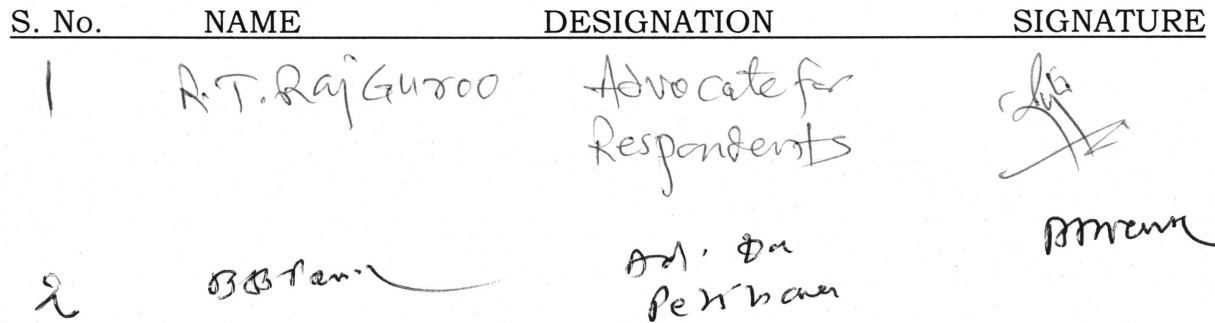 S. No. NAME DESIGNATION SIGNATURE
1 R.T. RajGuroo Advocate for
Respondents
2 Ad. for
Petitioner